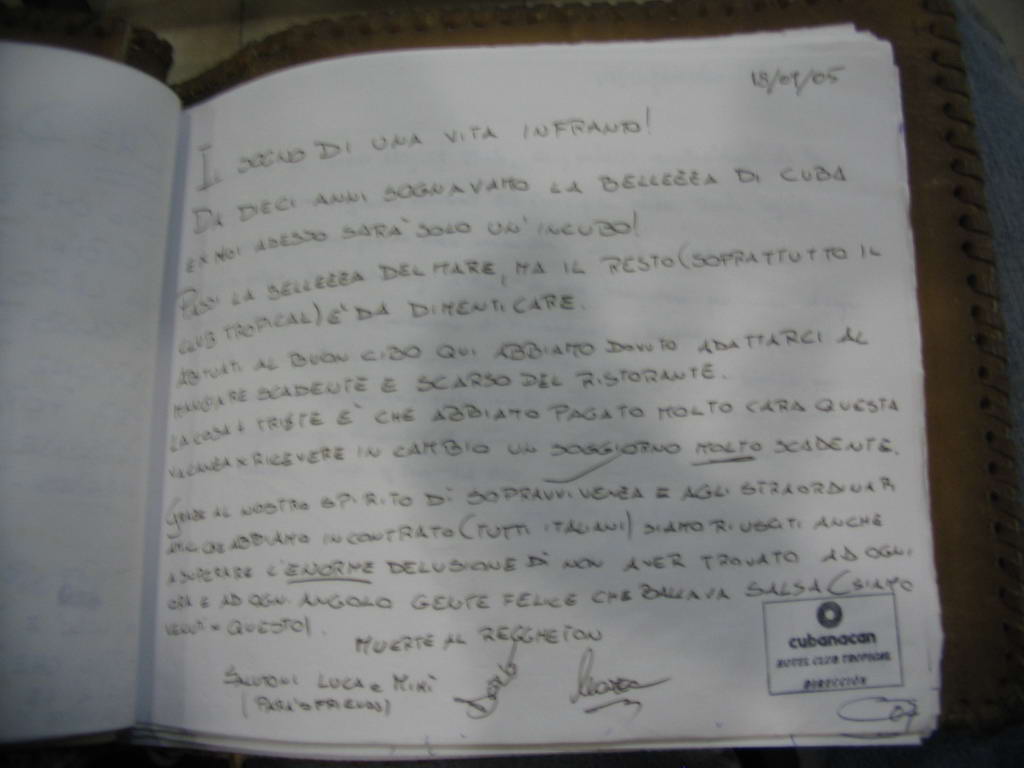 18/09/05
IL SOGNO DI UNA VITA INFRANTO!
DA DIECI ANNI SOGNAVAMO LA BELLEZZA DI CUBA
E X NOI ADESSO SARA' SOLO UN'INCUBO!
PASSI LA BELLEZZA DEL MARE, MA IL RESTO (SOPRATTUTTO IL
CLUB TROPICAL) E' DA DIMENTICARE.
ABITUATI AL BUON CIBO QUI ABBIAMO DOVUTO ADATTARCI AL
MANGIARE SCADENTE E SCARSO DEL RISTORANTE.
LA COSA + TRISTE E' CHE ABBIAMO PAGATO MOLTO CARA QUESTA
VACANZA X RICEVERE IN CAMBIO UN SOGGIORNO MOLTO SCADENTE.
GRAZIE AL NOSTRO SPIRITO DI SOPRAVVIVENZA E AGLI STRAORDINARI
AMICI CHE ABBIAMO INCONTRATO (TUTTI ITALIANI) SIAMO RIUSCITI ANCHE
A SUPERARE L'ENORME DELUSIONE DI NON AVER TROVATO AD OGNI
ORA E AD OGNI ANGOLO GENTE FELICE CHE BALLAVA SALSA (SIAMO
VENUTI X QUESTO).
MUERTE AL REGGHETON
SALUTONI LUCA e MIKI
(PARA'S FRIENDS)
cubanacan
HOTEL CLUB TROPICAL
DIRECCIÓN